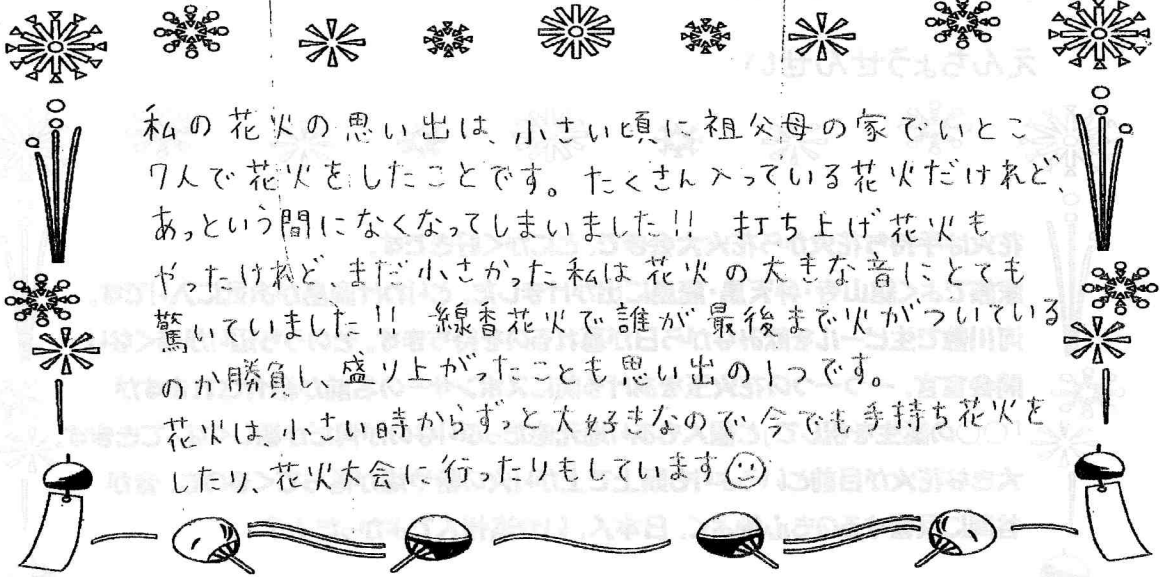 私の花火の思い出は、小さい頃に祖父母の家でいとこ
7人で花火をしたことです。たくさん入っている花火だけれど、
あっという間になくなってしまいました!! 打ち上げ花火も
やったけれど、まだ小さかった私は花火の大きな音にとても
驚いていました!! 線香花火で誰が最後まで火がついている
のか勝負し、盛り上がったことも思い出の1つです。
花火は、小さい時からずっと大好きなので今でも手持ち花火を
したり、花火大会に行ったりもしています☺